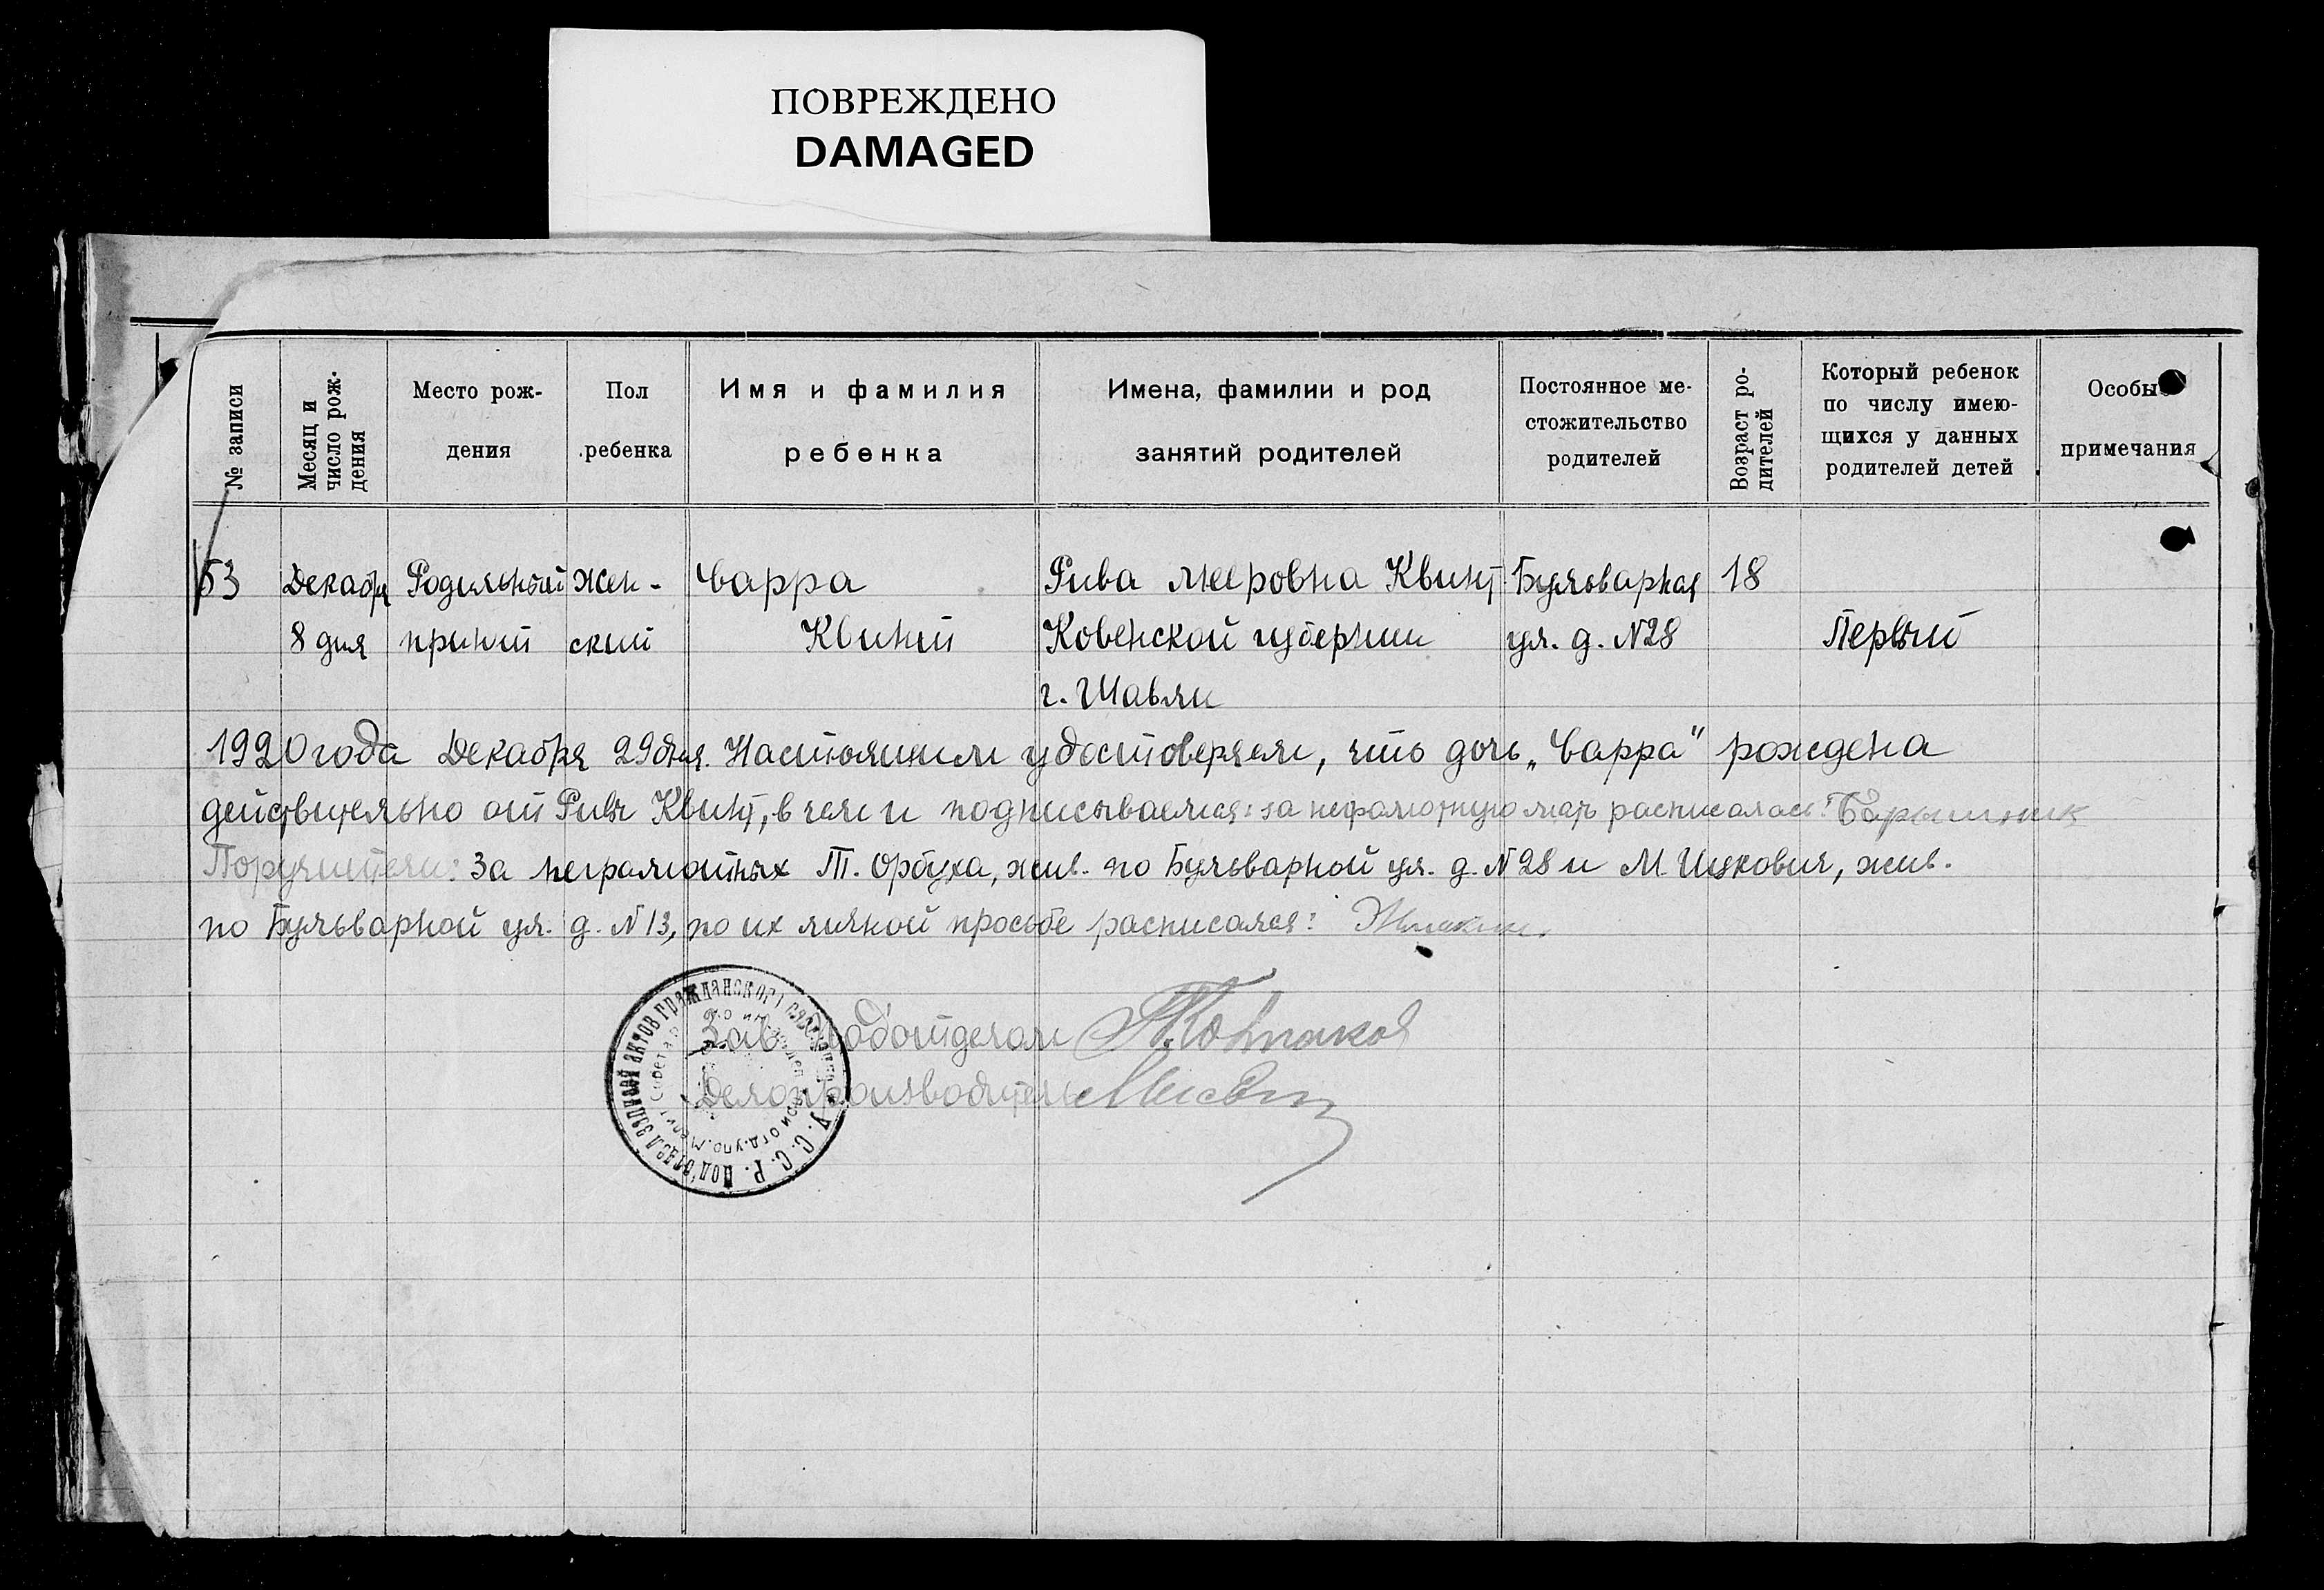 ПОВРЕЖДЕНО
DAMAGED
№ записи
Месяц и число рож- дения
Место рож- дения
Пол ребенка
Имя и фамилия ребенка
Имена, фамилии и род занятий родителей
Постоянное ме- стожительство родителей
Возраст ро- дителей
Который ребенок по числу имею- щихся у данных родителей детей
Особы примечания
53 Декабря Родильный Жен- Сарра Рива Мееровна Квинт Бульварная 18
8 дня приют ский Квинт Ковенской губернии ул. д. №28 Первый
г. Шавли
1920 года Декабря 29 дня. Настоящим удостоверяем, что дочь „Сарра" рождена
действительно от Ривы Квинт, в чем и подписываемся: за неграмотную мать расписалась:
Поручители: За неграмотных Т. Орбуха, жив. по Бульварной ул. д. №28 и М. Ицкович, жив.
по Бульварной ул. д. №13, по их личной просьбе расписался:
Зав. подотделом
Делопроизводитель
У. С. С. Р. Под'отдел записей актов гражданского